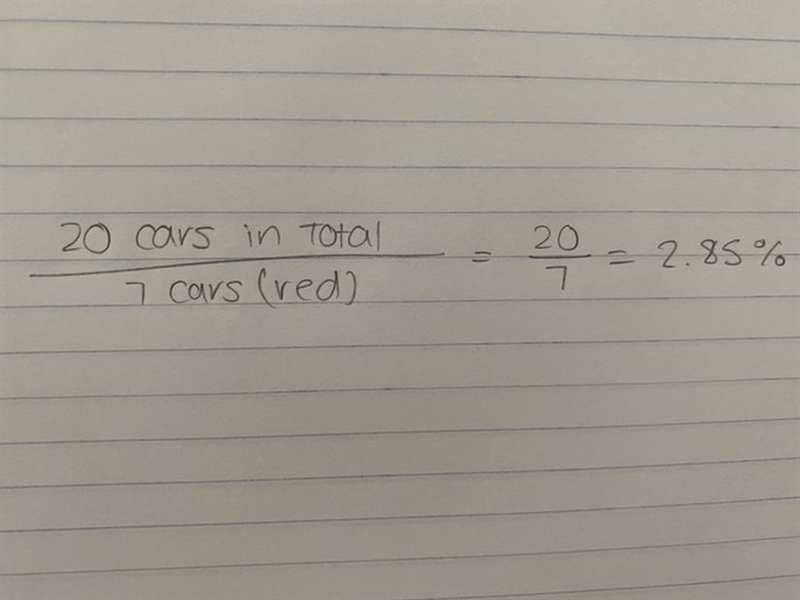 20 cars in Total / 7 cars (red) = 20/7 = 2.85%